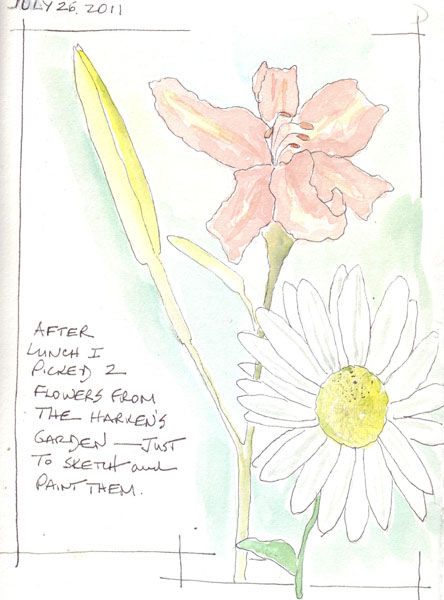 JULY 26, 2011
AFTER
LUNCH I
PICKED 2
FLOWERS FROM
THE HARKEN'S
GARDEN — JUST
TO SKETCH and
PAINT THEM.